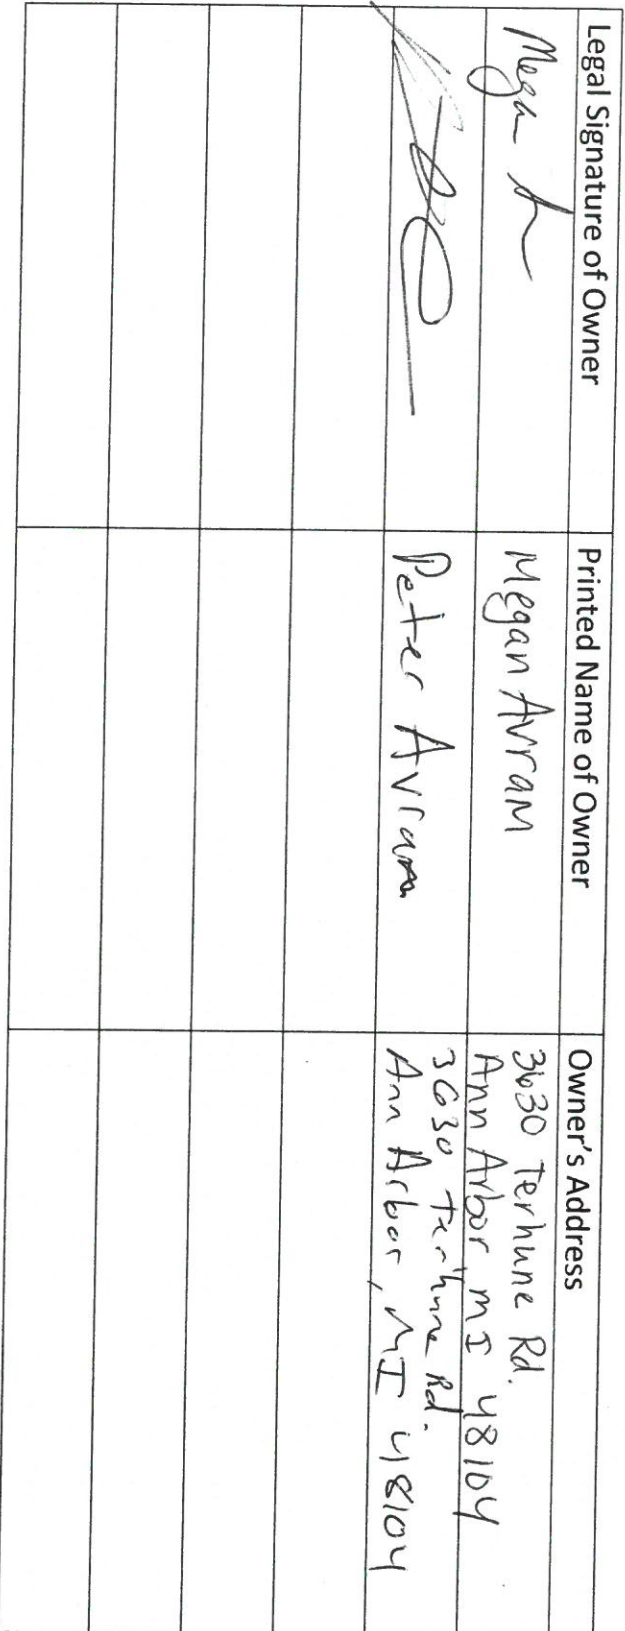 Legal Signature of Owner Printed Name of Owner Owner's Address
Megan Avram 3630 Terhune Rd.
Ann Arbor MI 48104
Peter Avram 3630 Terhune Rd.
Ann Arbor, MI 48104